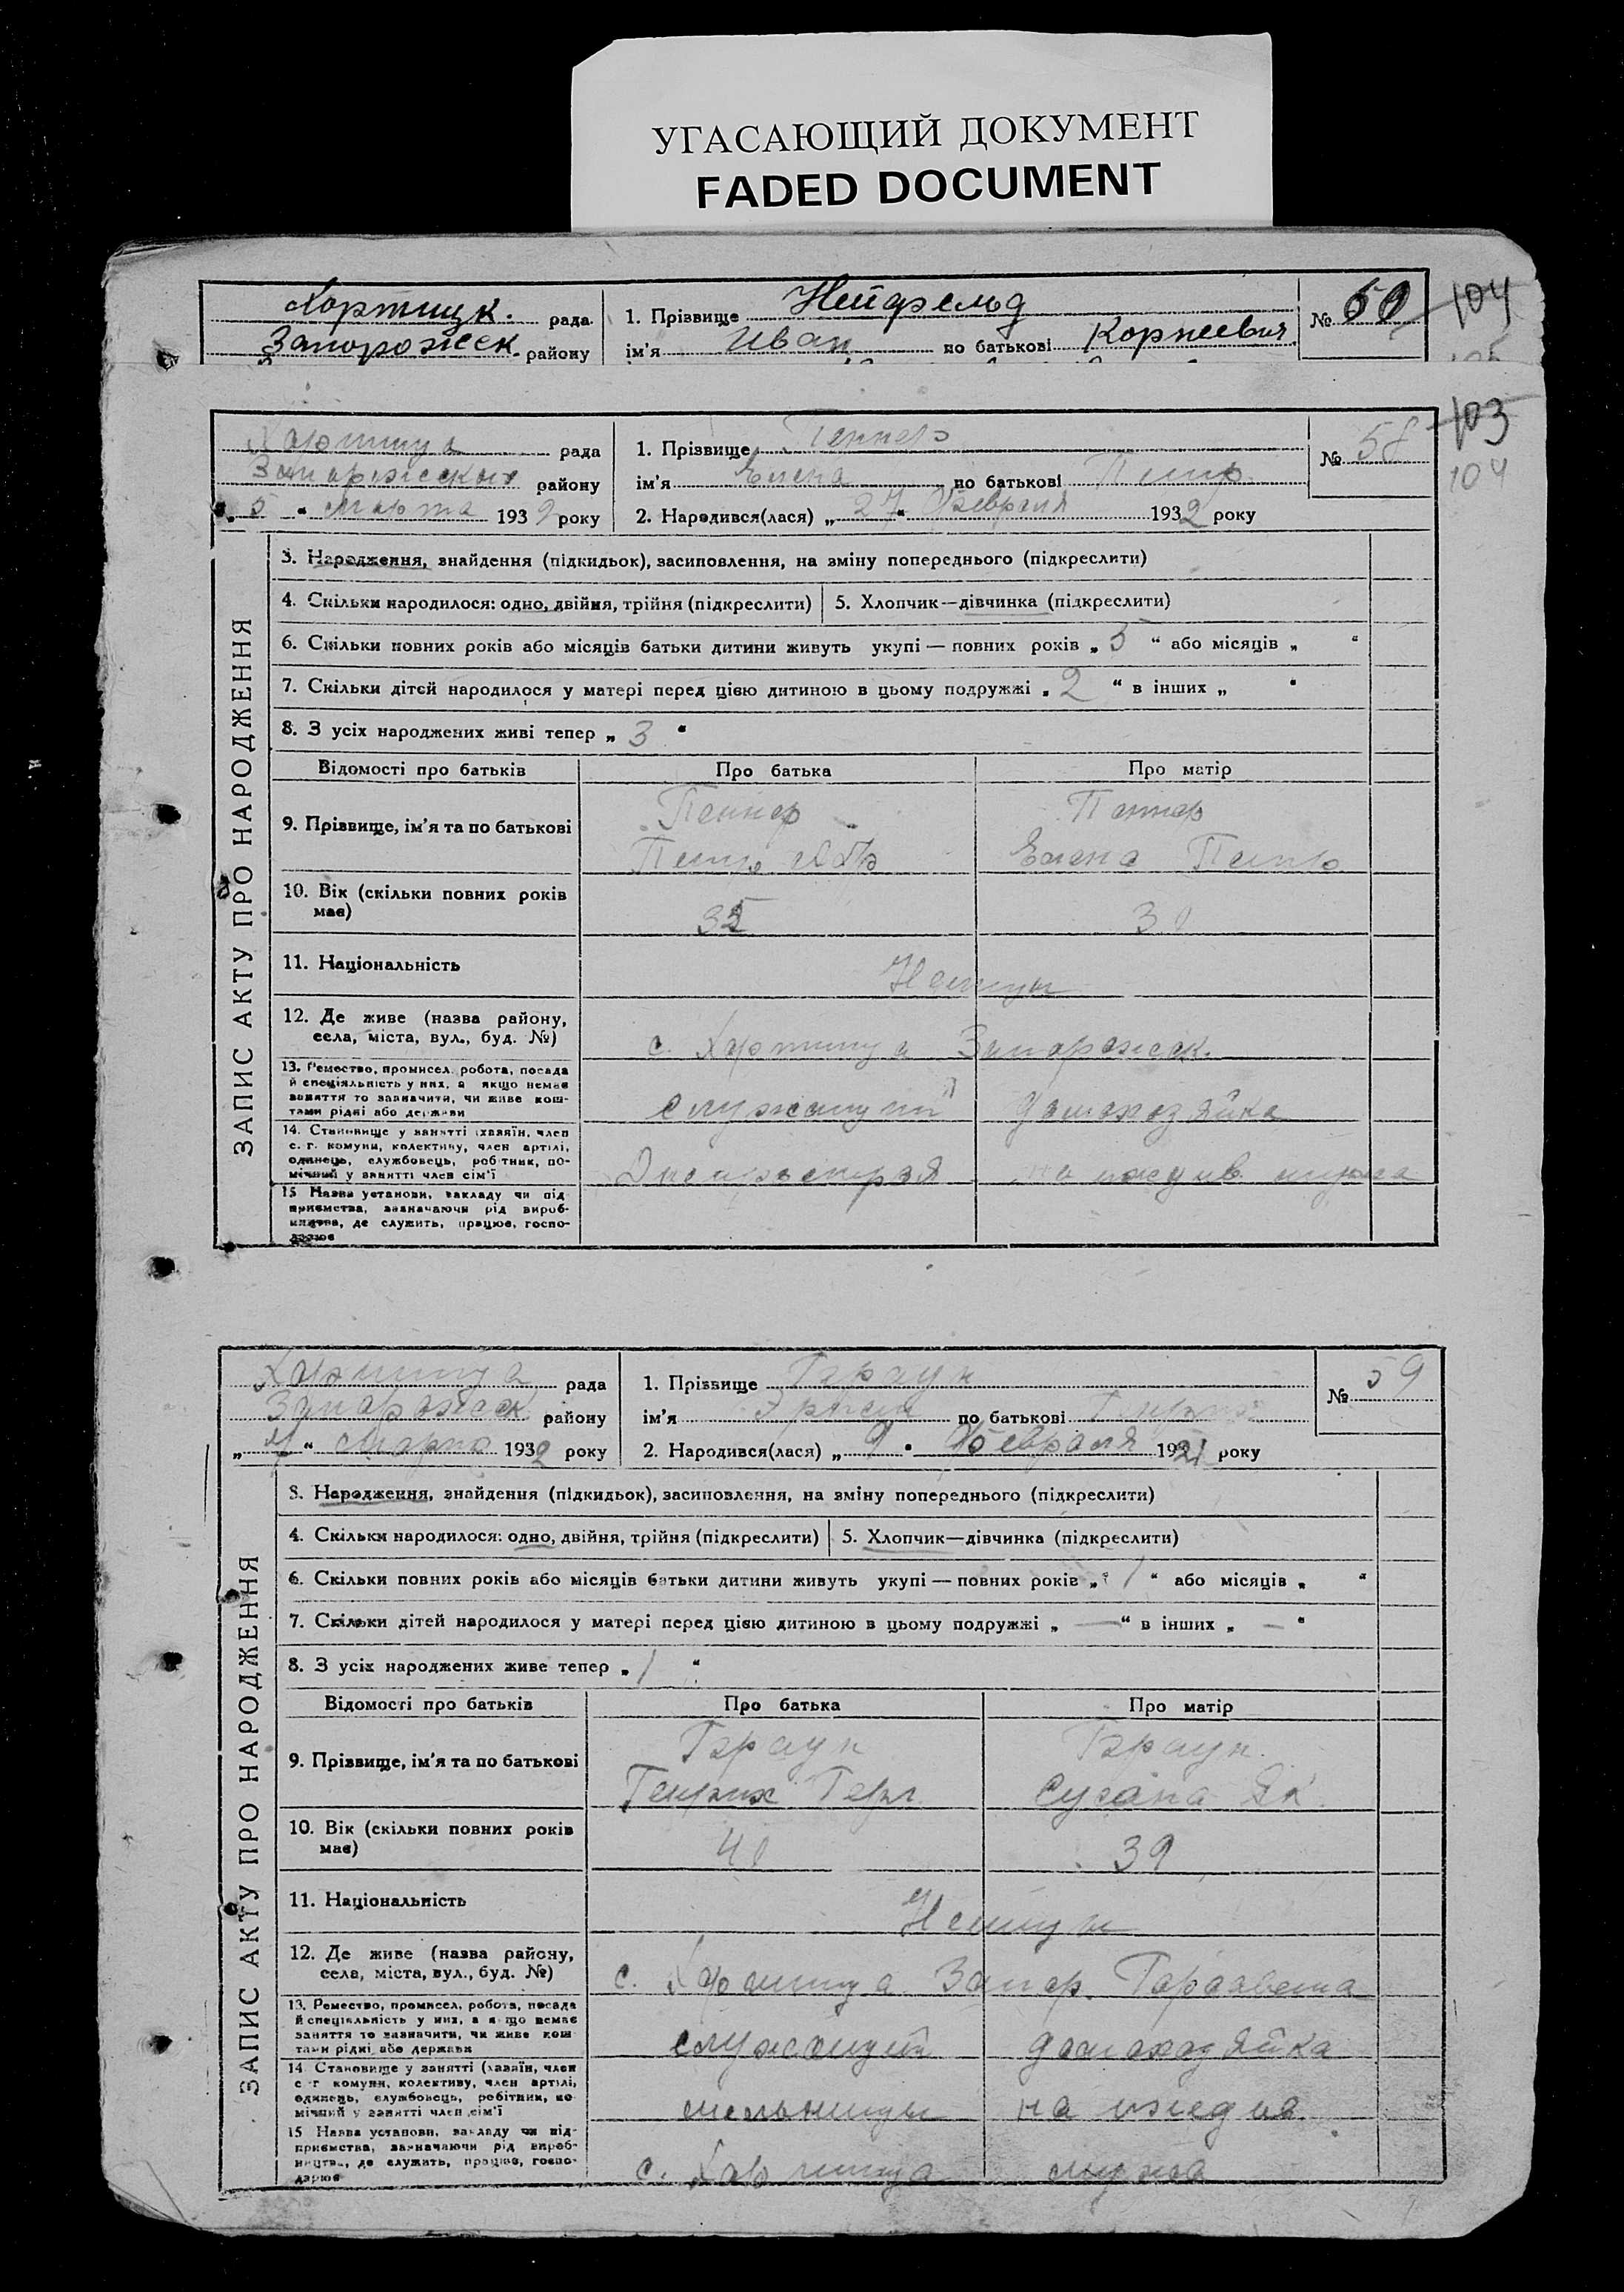 УГАСАЮЩИЙ ДОКУМЕНТ
FADED DOCUMENT
Хортицк. рада
Запорожск. району
1. Прізвище Нейфельд
ім'я Иван по батькові Корнеевич
№ 60
104
103
104
Хортица рада
Запорожского району
5 " Марта 1932 року
1. Прізвище Пеннер
ім'я Елена по батькові Петр.
2. Народився(лася) „ 27 " Февраля 1932 року
№ 58
ЗАПИС АКТУ ПРО НАРОДЖЕННЯ
3. Народження, знайдення (підкидьок), засиновлення, на зміну попереднього (підкреслити)
4. Скільки народилося: одно, двійня, трійня (підкреслити) 5. Хлопчик—дівчинка (підкреслити)
6. Скільки повних років або місяців батьки дитини живуть укупі — повних років „ 5 " або місяців „ "
7. Скільки дітей народилося у матері перед цією дитиною в цьому подружжі „ 2 " в інших „ "
8. З усіх народжених живі тепер „ 3 "
Відомості про батьків Про батька Про матір
9. Прізвище, ім'я та по батькові
Пеннер Пеннер
Петр Елена Петр.
10. Вік (скільки повних років має)
35 30
11. Національність
Немцы
12. Де живе (назва району, села, міста, вул., буд. №)
с. Хортица Запорожск.
13. Ремество, промисел, робота, посада й спеціяльність у них, а якщо немає заняття то зазначити, чи живе коштами рідні або держави
служащий домохозяйка
14. Становище у занятті (хазяїн, член с. г. комуни, колективу, член артілі, одинець, службовець, робітник, помічний у занятті член сім'ї
на иждив. мужа
15 Назва установи, закладу чи підприємства, зазначаючи рід виробництва, де служить, працює, господарює
Хортица рада
Запорожск. району
„ " Марта 1932 року
1. Прізвище Браун
ім'я по батькові Генрих
2. Народився(лася) „ 9 " Февраля 193 року
№ 59
ЗАПИС АКТУ ПРО НАРОДЖЕННЯ
3. Народження, знайдення (підкидьок), засиновлення, на зміну попереднього (підкреслити)
4. Скільки народилося: одно, двійня, трійня (підкреслити) 5. Хлопчик—дівчинка (підкреслити)
6. Скільки повних років або місяців батьки дитини живуть укупі — повних років „ 1 " або місяців „ "
7. Скільки дітей народилося у матері перед цією дитиною в цьому подружжі „ — " в інших „ — "
8. З усіх народжених живе тепер „ 1 "
Відомості про батьків Про батька Про матір
9. Прізвище, ім'я та по батькові
Браун Браун.
Генрих Герг. Сусана Як.
10. Вік (скільки повних років має)
40 39
11. Національність
Немцы
12. Де живе (назва району, села, міста, вул., буд. №)
с. Хортица Запор. Горсовета
13. Ремество, промисел, робота, посада й спеціяльність у них, а якщо немає заняття то зазначити, чи живе коштами рідні або держави
служащий домохозяйка
14 Становище у занятті (хазяїн, член с г комуни, колективу, член артілі, одинець, службовець, робітник, помічний у занятті член сім'ї
мельницы на иждив.
15 Назва установи, закладу чи підприємства, зазначаючи рід виробництва, де служить, працює, господарює
с. Хортица мужа